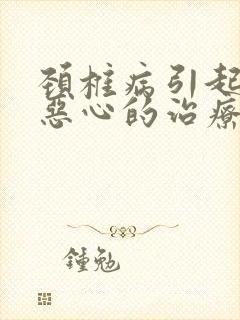 颈椎病引起
惡心的治療
鍾勉